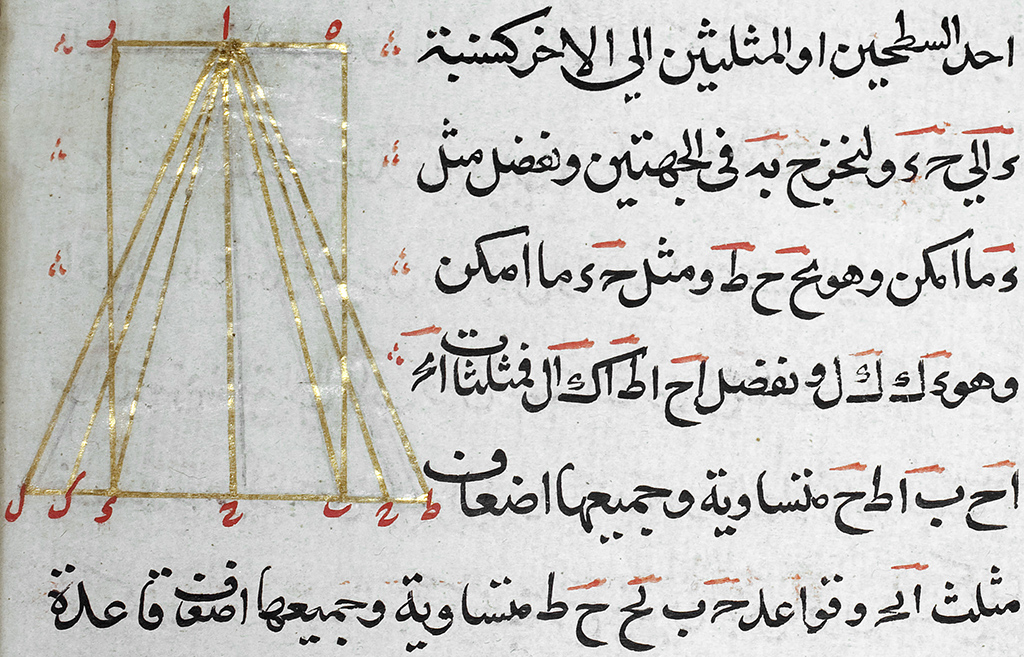 احد السطحين او المثلثين الي الاخر كنسبة
ء الي حء ولنخرج به في الجهتين ونفصل مثل
ء ما امكن وهو بح ح ط ومثل حء ما امكن
وهو ءك ك ل ونفصل اح اط اك ال فمثلثات
اح ب اط ح متساوية وجميعها اضعاف
مثلث وقواعد حب بح ح ط متساوية وجميعها اضعاف قاعدة
ر ا ه
ل ك ء ح ب ح ط